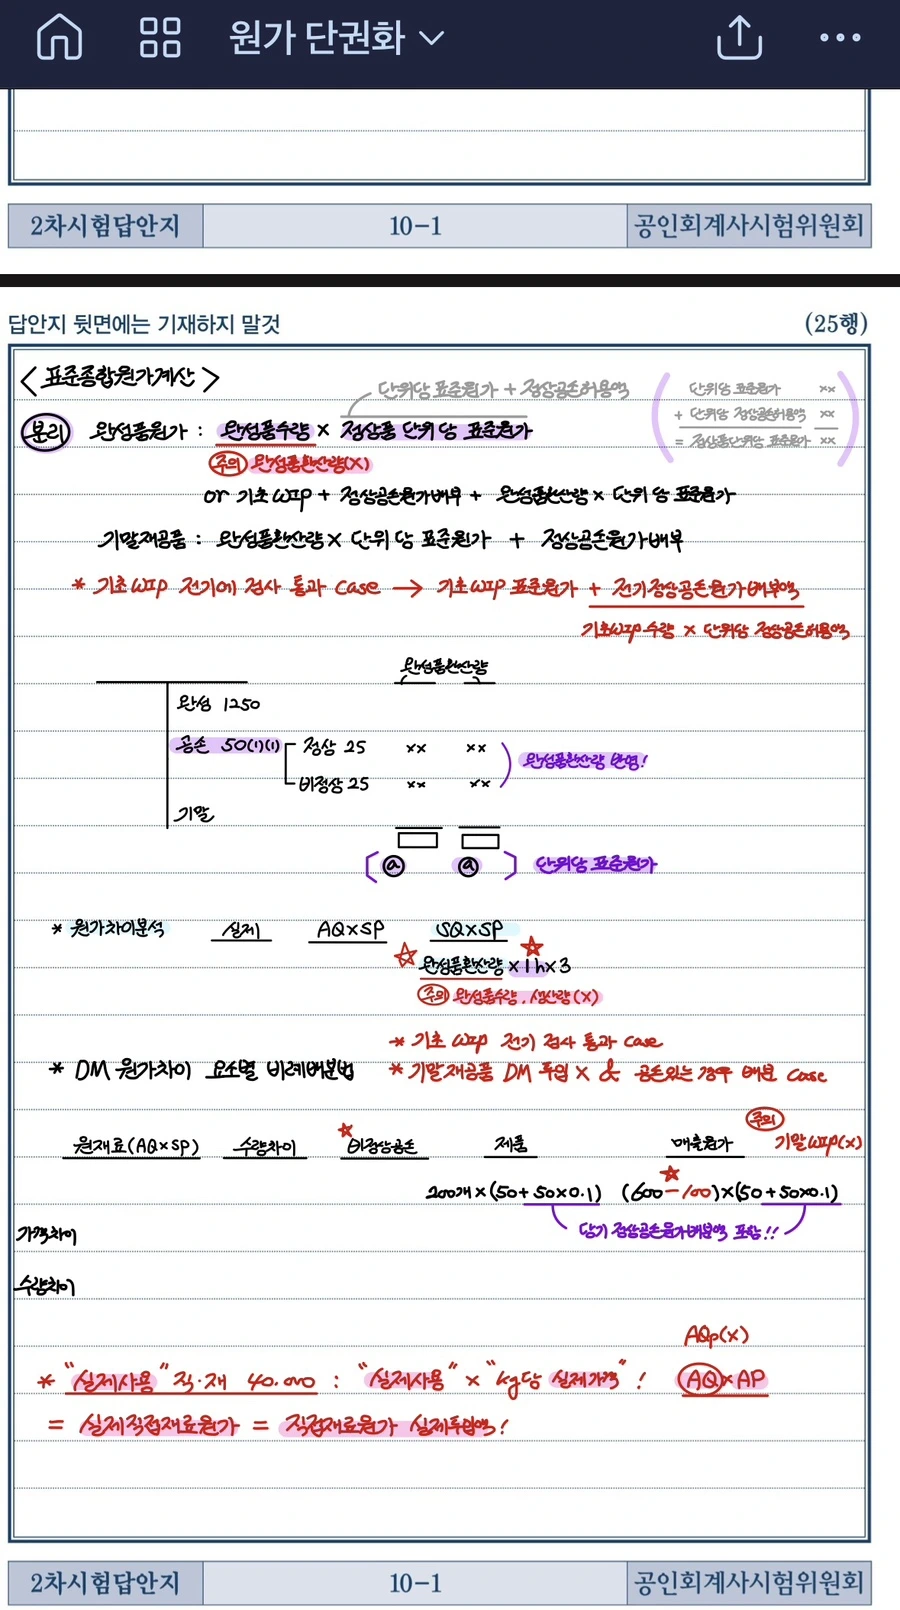 원가 단권화
2차시험답안지 10-1 공인회계사시험위원회
답안지 뒷면에는 기재하지 말것 (25행)
<표준종합원가계산>
단위당 표준원가 + 정상공손허용액
단위당 표준원가 ××
+ 단위당 정상공손허용액 ××
= 정상품단위당 표준원가 ××
분리 완성품원가 : 완성품수량 × 정상품 단위당 표준원가
주의 완성품환산량(×)
or 기초WIP + 정상공손원가배부 + 완성품환산량 × 단위당 표준원가
기말재공품 : 완성품환산량 × 단위당 표준원가 + 정상공손원가배부
* 기초WIP 전기에 검사 통과 case → 기초WIP 표준원가 + 전기정상공손원가배부액
기초WIP수량 × 단위당 정상공손허용액
완성품환산량
완성 1250
공손 50(1)(1) 정상 25 ×× ×× 완성품환산량 반영!
비정상 25 ×× ××
기말
ⓐ ⓐ 단위당 표준원가
* 원가차이분석 실제 AQ×SP SQ×SP
☆ 완성품환산량 × 1h × 3 ☆
주의 완성품수량, 생산량(×)
* 기초 WIP 전기 검사 통과 case
* DM 원가차이 요소별 비례배분법 * 기말재공품 DM 투입 × & 공손있는 경우 배분 case
원재료(AQ×SP) 수량차이 ☆비정상공손 제품 매출원가 주의 기말WIP(×)
200개×(50+50×0.1) (600-100)×(50+50×0.1)
당기 정상공손원가배분액 포함!!
가격차이
수량차이
AQp(×)
* "실제사용" 직·재 40,000 : "실제사용" × "kg당 실제가격"! AQ×AP
= 실제직접재료원가 = 직접재료원가 실제투입액!
2차시험답안지 10-1 공인회계사시험위원회